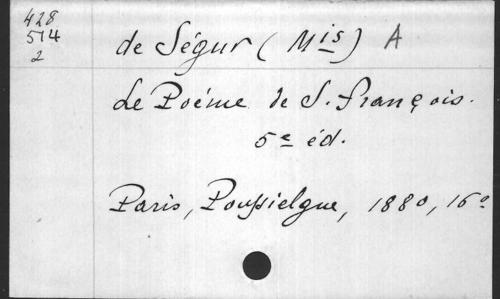 428
514
2
de Ségur (Mis) A
Le Poéme de S. François.
5e éd.
Paris, Poussielgue, 1880, 16o